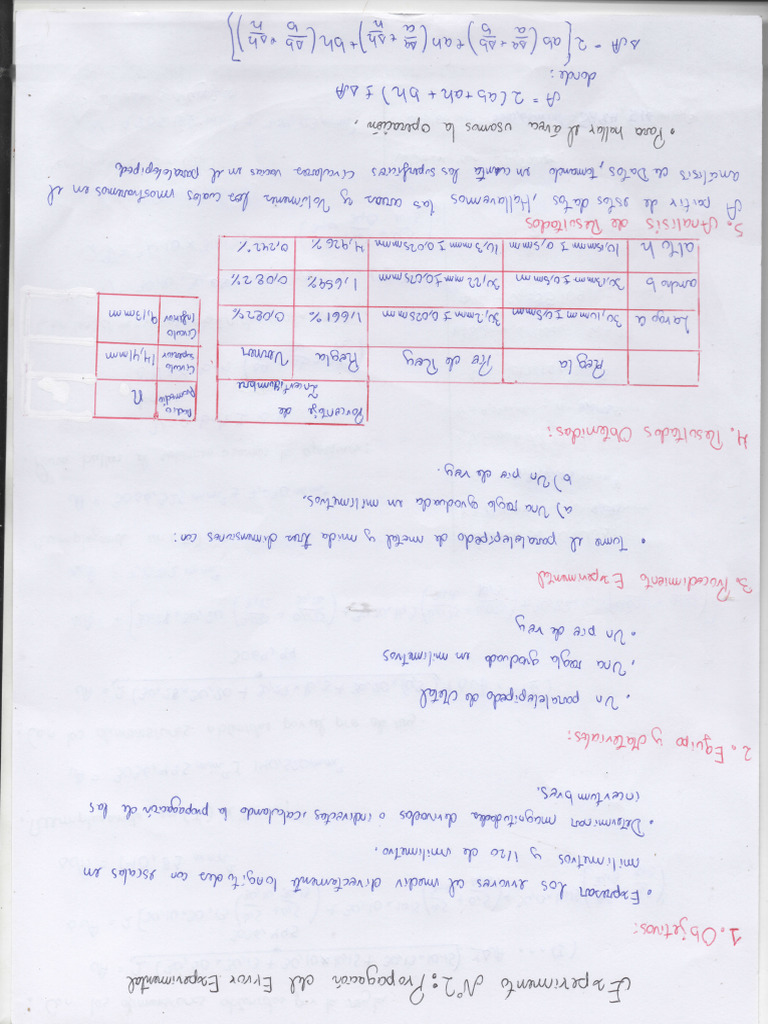 Experimento N°2: Propagación del Error Experimental
1. Objetivos:
• Expresar los errores al medir directamente longitudes con escalas en
milimetros y 1/20 de milimetro.
• Determinar magnitudes derivadas o indirectas, calculando la propagación de las
incertumbres.
2. Equipo y Materiales:
• Un paralelepípedo de Metal
• Una regla graduada en milimetros
• Un pie de rey
3. Procedimiento Experimental
• Tome el paralelepípedo de metal y mida tres dimensiones con:
a) Una regla graduada en milimetros.
b) Un pie de rey.
4. Resultados Obtenidos:
Porcentaje de Incertidumbre
Regla Pie de Rey Regla Vernier
Largo a 30,10mm ± 0,5mm 30,2mm ± 0,025mm 1,661% 0,082%
ancho b 30,13mm ± 0,5mm 30,22mm ± 0,025mm 1,659% 0,082%
alto h 10,15mm ± 0,5mm 10,3mm ± 0,025mm 4,926% 0,242%
Radio Promedio n
Circulo superior 14,41mm
Circulo Inferior 9,13mm
5. Analisis de Resultados
A partir de estos datos, Hallaremos las areas y Volumenes Los cuales mostraremos en el
analisis de Datos, tomando en cuenta las superficies circulares vacias en el paralelepiped
• Para hallar el área usamos la operación.
A = 2(ab + ah + bh) ± ΔA
donde:
ΔA = 2[ab(Δa/a + Δb/b) + ah(Δa/a + Δh/h) + bh(Δb/b + Δh/h)]